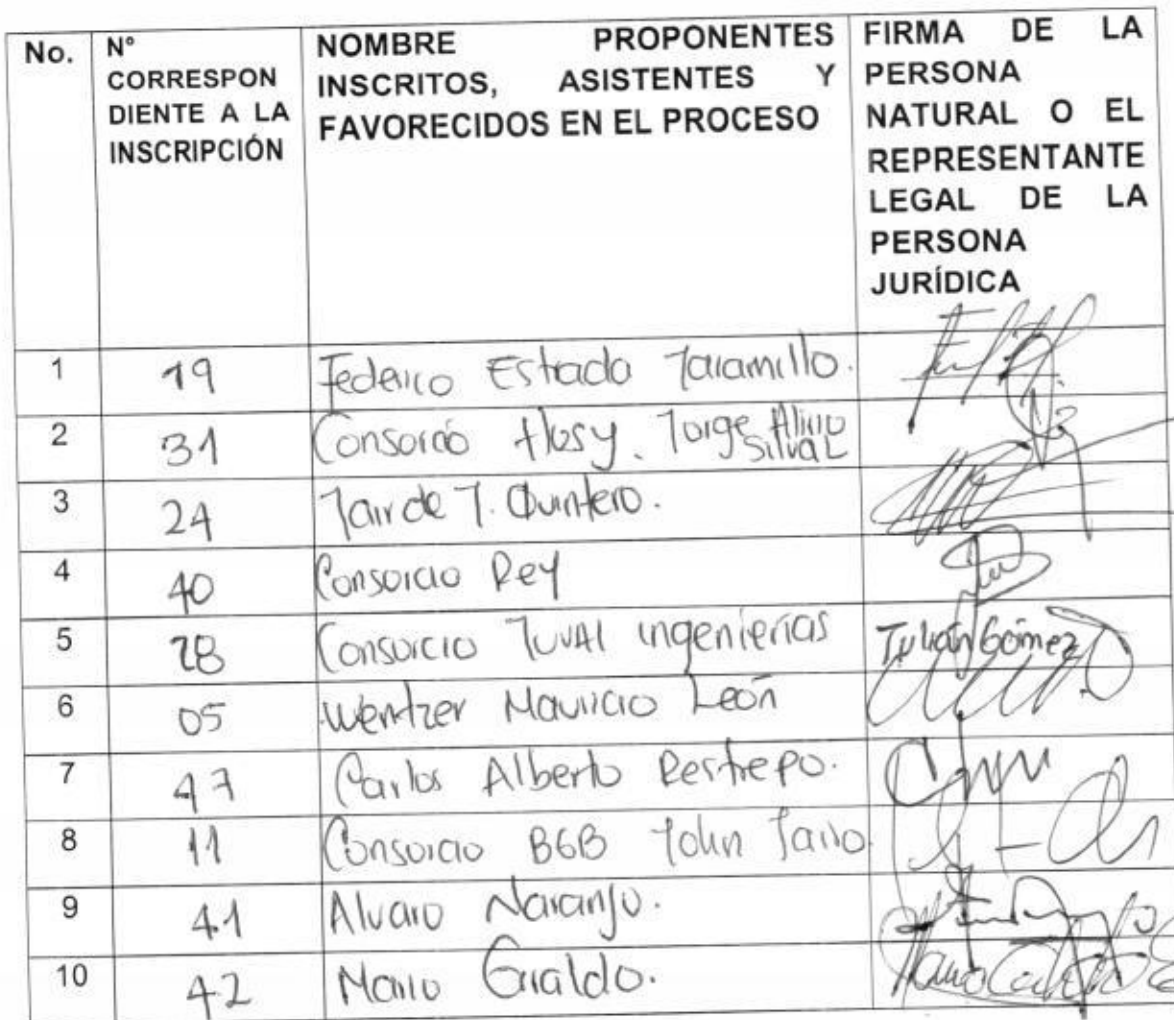 No. N° CORRESPON DIENTE A LA INSCRIPCIÓN NOMBRE PROPONENTES INSCRITOS, ASISTENTES Y FAVORECIDOS EN EL PROCESO FIRMA DE LA PERSONA NATURAL O EL REPRESENTANTE LEGAL DE LA PERSONA JURÍDICA
1 19 Federico Estrada Jaramillo.
2 31 Consorcio Jorge Alirio Silva L
3 24 J. Quintero.
4 40 Consorcio Rey
5 28 Consorcio JUVAL ingenierias Julián Gómez
6 05 Mauricio León
7 47 Carlos Alberto Restrepo.
8 11 Consorcio BGB John Jairo
9 41 Alvaro Naranjo.
10 42 Mario Giraldo.